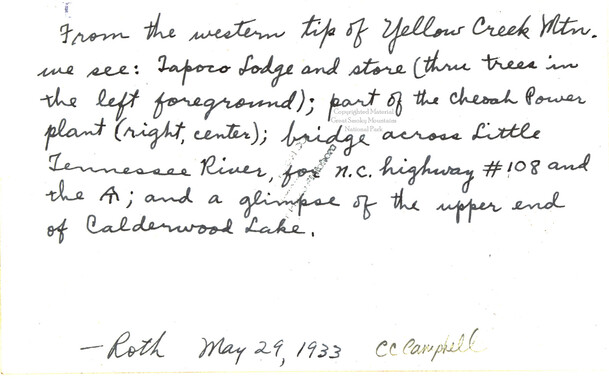 From the western tip of Yellow Creek Mtn.
we see: Tapoco Lodge and store (thru trees in
the left foreground); part of the Cheoah Power
Copyrighted Material
Great Smoky Mountains
National Park
plant (right, center); bridge across Little
Tennessee River, for N.C. highway #108 and
the AT; and a glimpse of the upper end
of Calderwood Lake.
— Roth May 29, 1933 CC Campbell